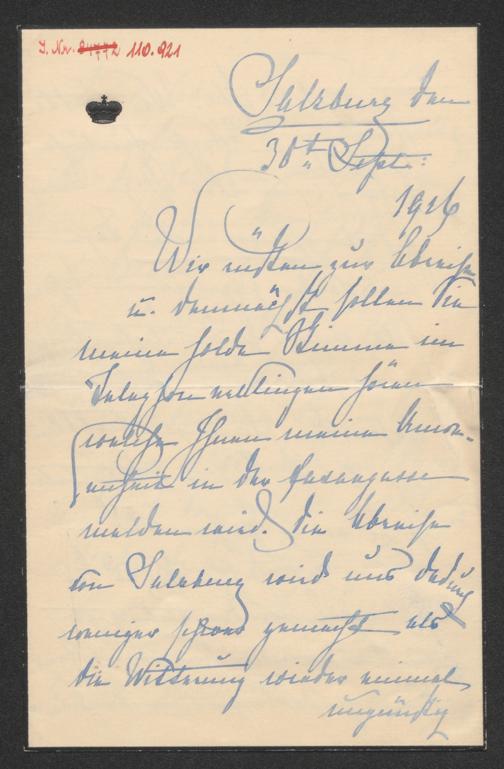 I. Nr. 24772 110.921
Salzburg den
30t Sept:
1916
Wir rüsten zur Abreise
u. demnächst sollen Sie
meine holde Stimme im
Telephon erklingen hören
welche Ihnen meine Anwe-
senheit in der Taxengasse
melden wird. Die Abreise
von Salzburg wird uns dadurch
weniger schwer gemacht als
die Witterung wieder einmal
ungünstig